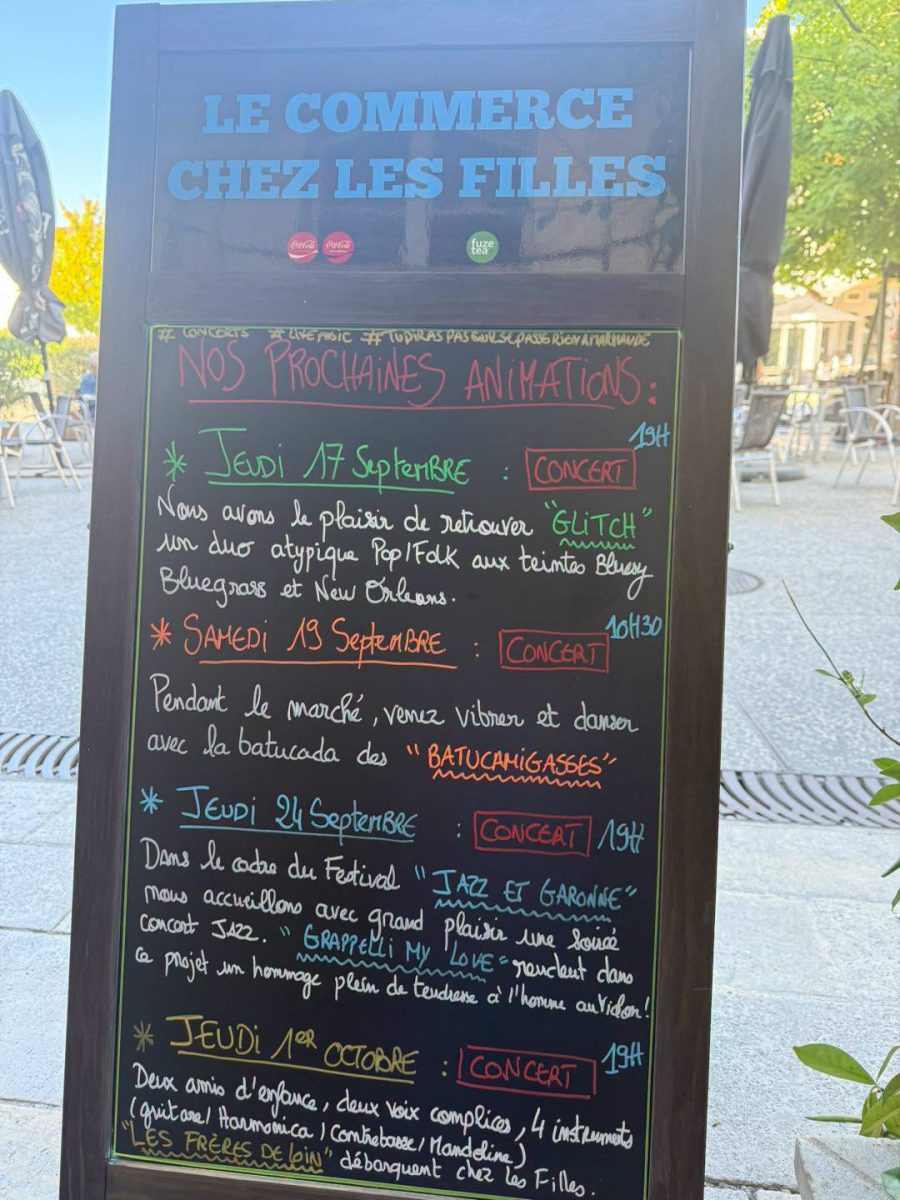 LE COMMERCE
CHEZ LES FILLES
Coca-Cola Coca-Cola
fuze tea
# CONCERTS # LIVE MUSIC # TUDIRASPASQUILSEPASSERIENAMARMANDE
NOS PROCHAINES ANIMATIONS :
* JEUDI 17 Septembre : CONCERT 19H
Nous avons le plaisir de retrouver "GLITCH"
un duo atypique Pop/Folk aux teintes Bluesy
Bluegrass et New Orleans.
* SAMEDI 19 Septembre : CONCERT 10H30
Pendant le marché, venez vibrer et danser
avec la batucada des "BATUCAMIGASSES"
* JEUDI 24 Septembre : CONCERT 19H
Dans le cadre du Festival "JAZZ ET GARONNE"
nous accueillons avec grand plaisir une soirée
concert JAZZ. "GRAPPELLI MY LOVE" rendent dans
ce projet un hommage plein de tendresse à l'homme au violon!
* JEUDI 1ER OCTOBRE : CONCERT 19H
Deux amis d'enfance, deux voix complices, 4 instruments
(guitare/Harmonica/Contrebasse/Mandoline)
"LES FRÈRES DE LOIN" débarquent chez les Filles.